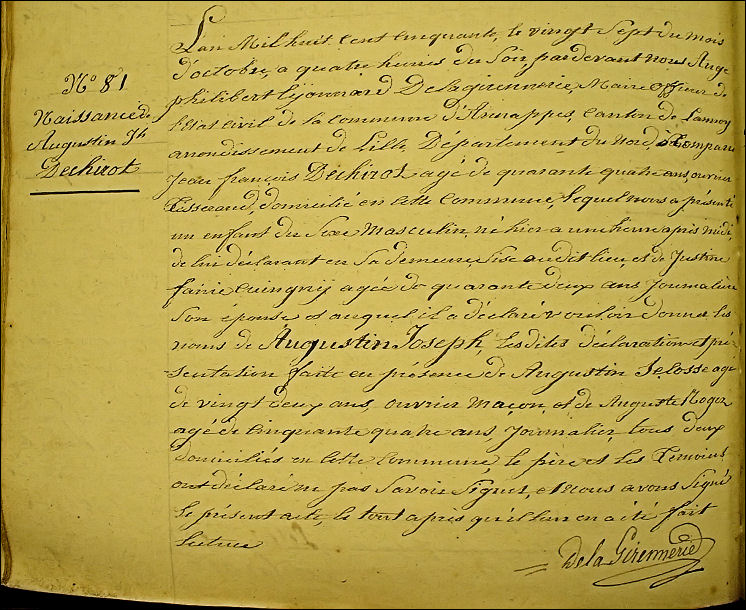 N° 81
Naissance de
Augustin Jh
Dechirot
L'an Mil huit cent cinquante, le vingt Sept du mois
d'octobre, a quatre heures du Soir, pardevant nous Ange
philibert Lyonnard De la girennerie, Maire officier de
l'Etat civil de la commune d'Annappes, canton de Lannoy
arrondissement de Lille, Département du Nord, a Comparu
Jean françois Dechirot agé de quarante quatre ans, ouvrier
Tisserand, domicilié en cette commune, lequel nous a présenté
un enfant du Sexe Masculin, né hier a une heure après midi
de lui déclarant en Sa demeure, Sise audit lieu, et de Justine
agée de quarante deux ans Journalière
Son épouse et auquel il a déclaré vouloir donner les
noms de Augustin Joseph, les dites déclaration et pré-
sentation faite en présence de Augustin Selosse agé
de vingt deux ans, ouvrier maçon, et de Auguste
agé de Cinquante quatre ans, Journalier, tous deux
domiciliés en cette commune, le père et les Temoins
ont déclaré ne pas Savoir Signer, et nous avons Signé
le présent acte, le tout après qu'il leur en a été fait
lecture
De la Girennerie